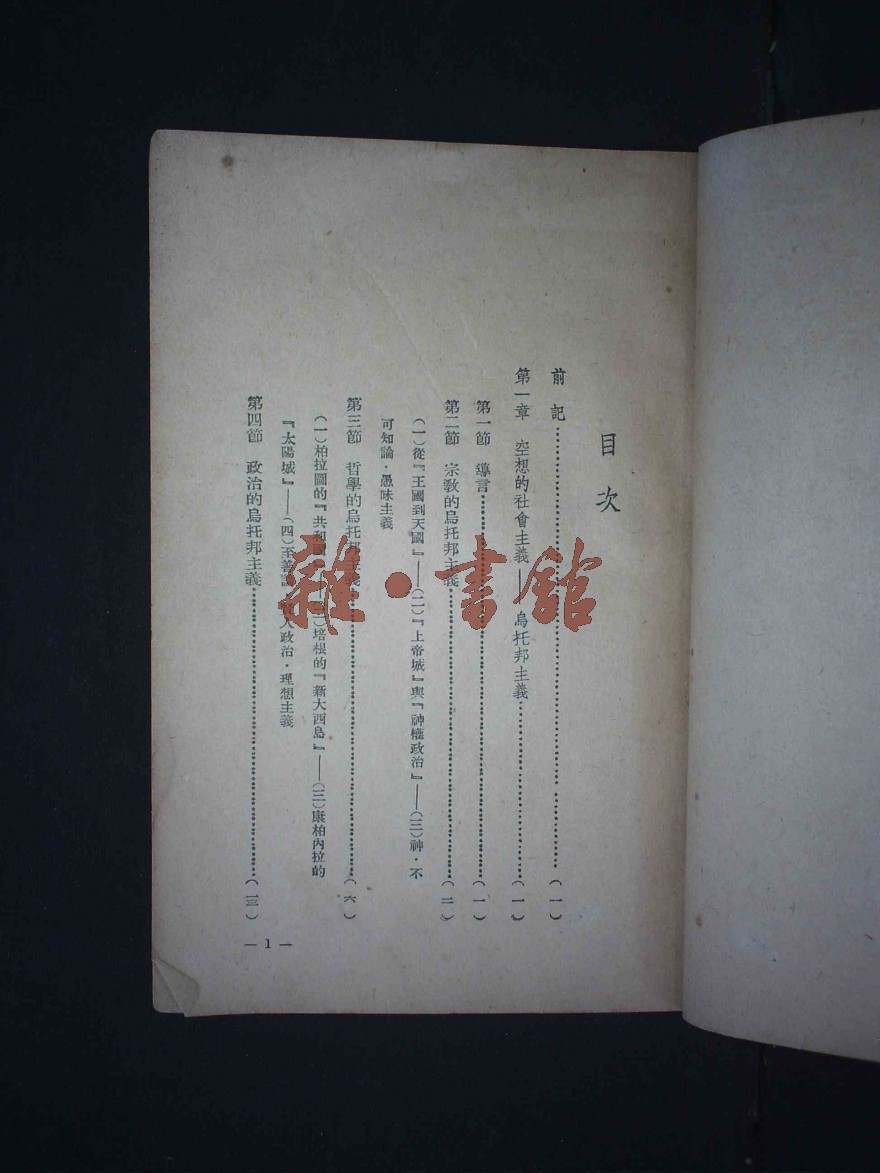 目次
前記…………………………(一)
第一章 空想的社會主義——烏托邦主義…………(一)
第一節 導言…………………………(一)
第二節 宗教的烏托邦主義…………………(二)
(一)從『王國到天國』——(二)『上帝城』與『神權政治』——(三)神·不
可知論·愚昧主義
第三節 哲學的烏托邦主義…………………(六)
(一)柏拉圖的『共和國 培根的『新大西島』——(三)康柏內拉的
『太陽城』——(四)至善 人政治·理想主義
第四節 政治的烏托邦主義…………………(一三)
— 1 —
雜·書館